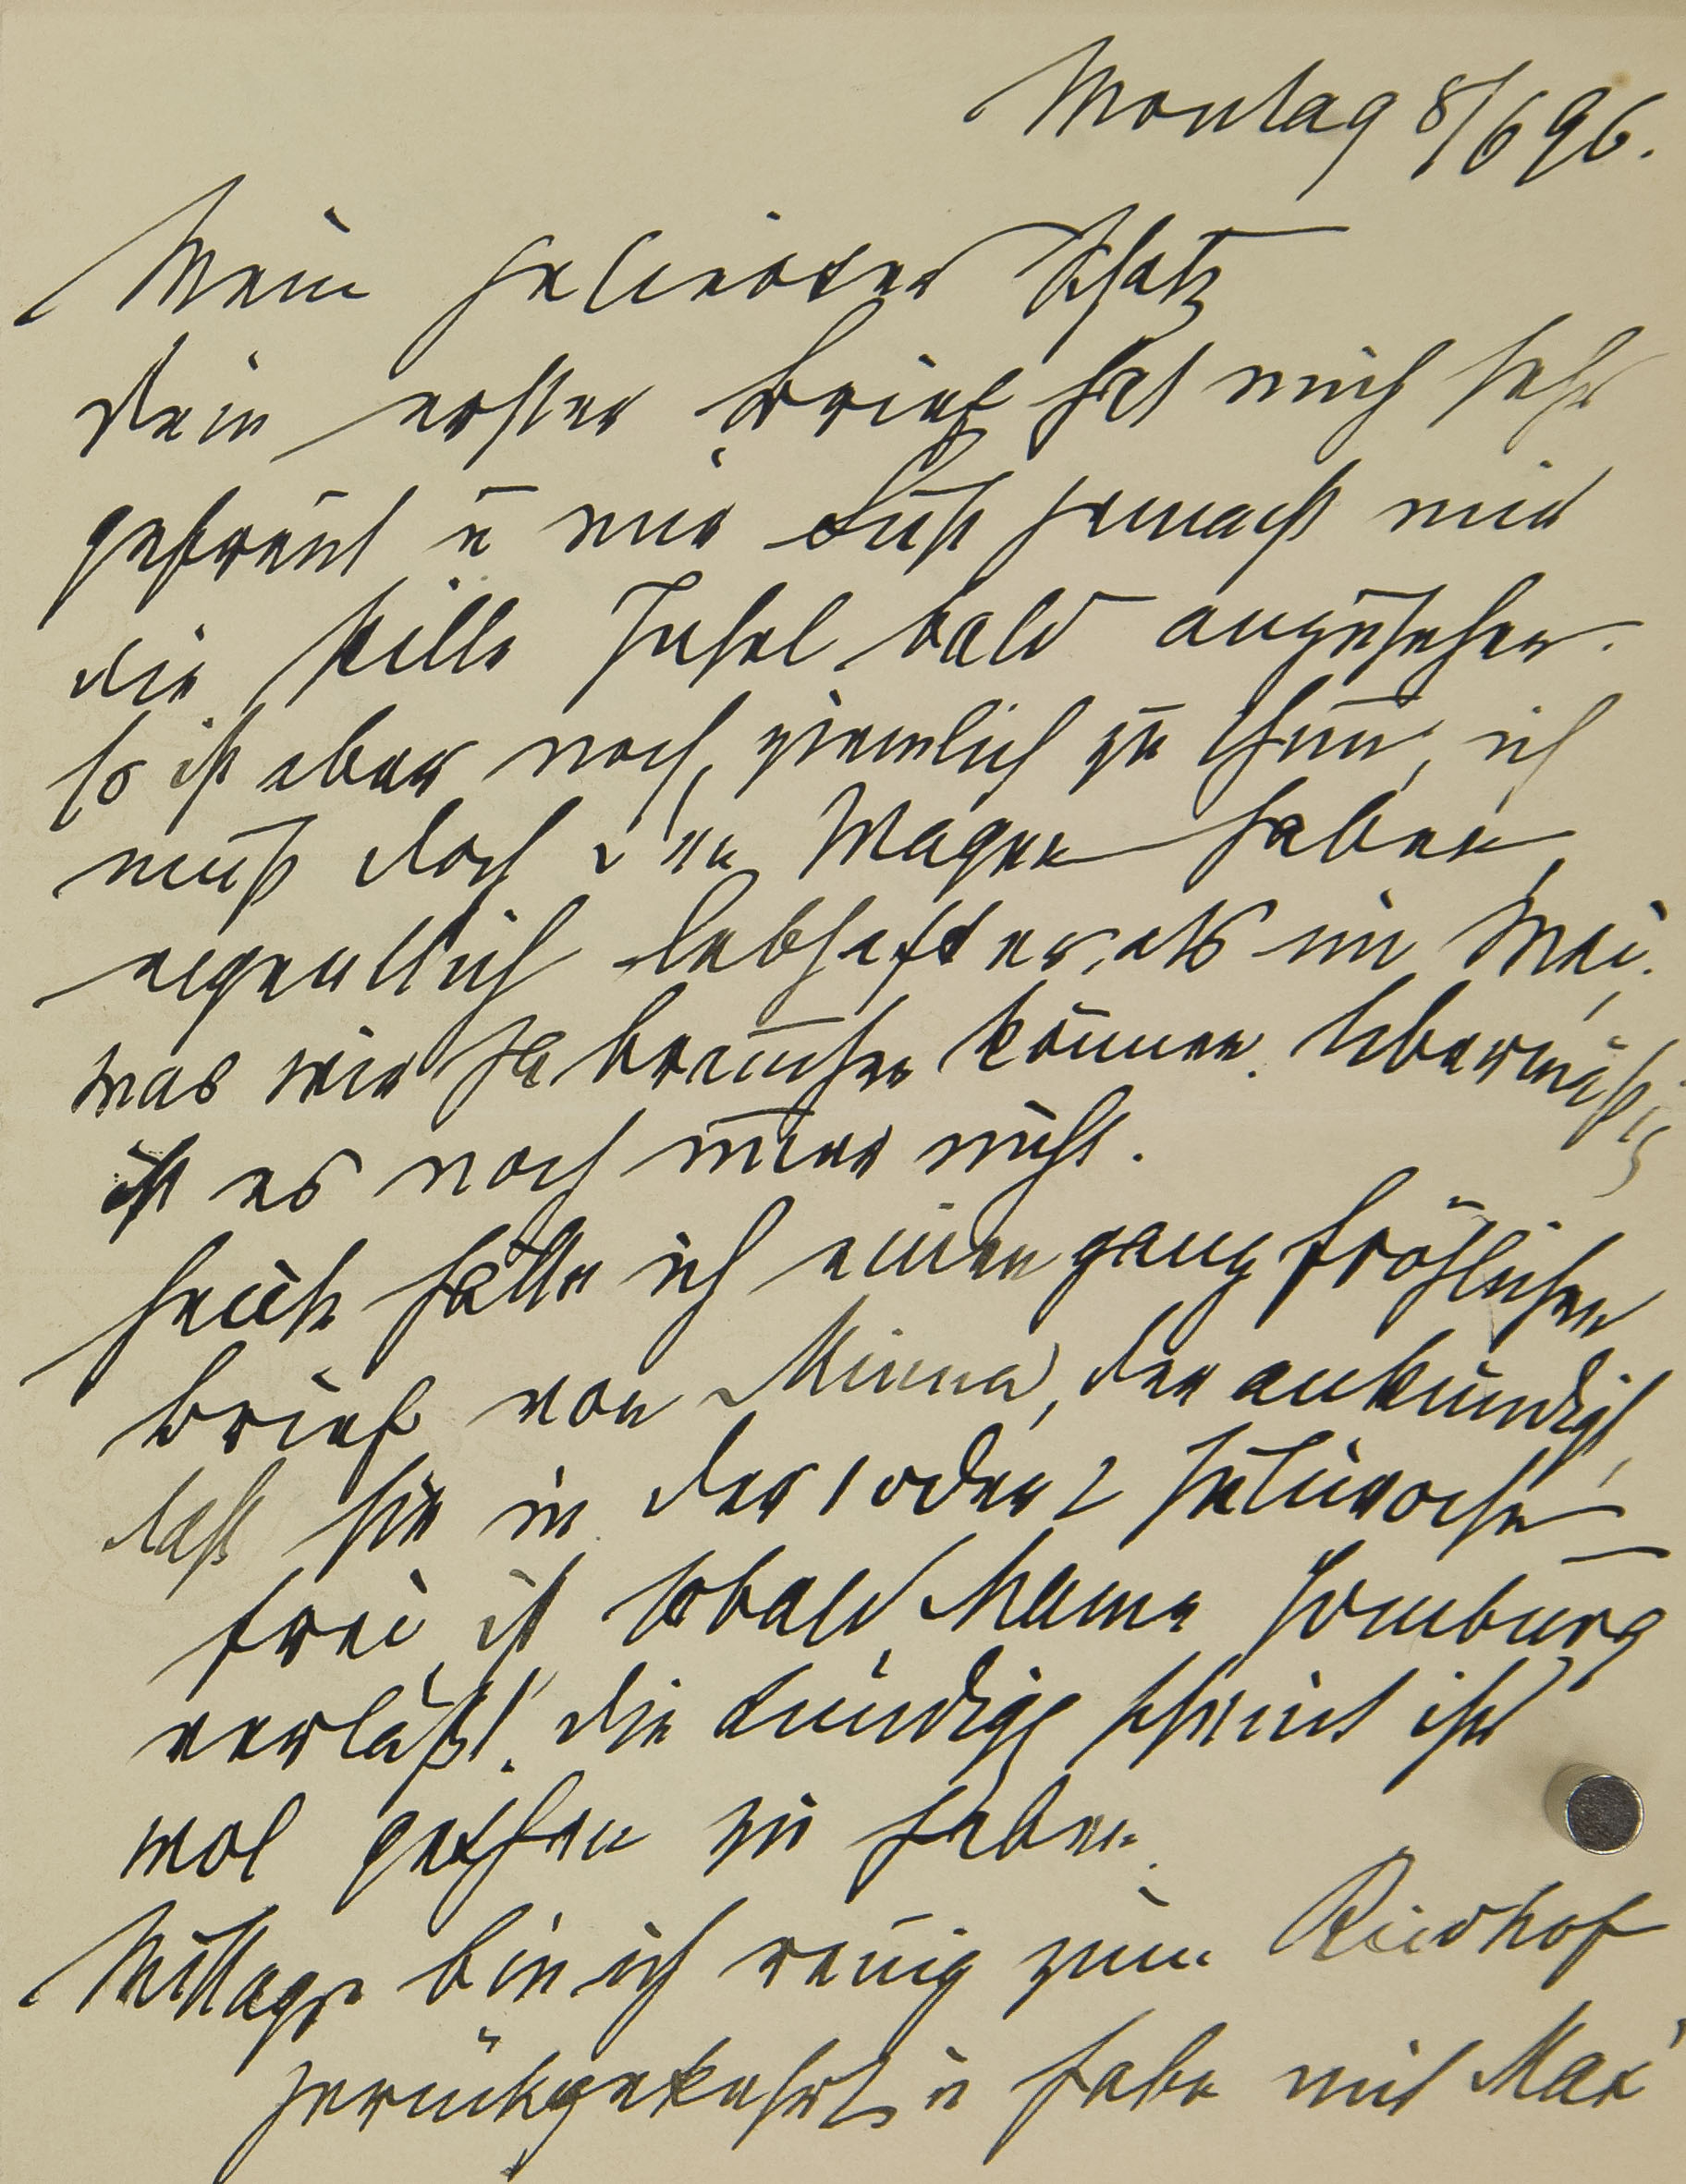 Montag 8/6 96.
Mein geliebter Schatz
Dein erster Brief hat mich sehr
gefreut u mir Lust gemacht mir
die stille Insel bald anzusehen.
Es ist aber noch ziemlich zu thun, ich
muß doch den Wagen haben,
eigentlich lebhafter als im Mai.
was wir ja brauchen können. Übermäßig
ist es noch immer nicht.
Heute hatte ich einen ganz fröhlichen
Brief von Minna, der ankündigt,
daß sie in der 1 oder 2 Juliwoche
frei ist sobald Mama Homburg
verläßt! die Kündigg scheint ihr
wol gethan zu haben.
Mittags bin ich reuig zum Riedhof
zurückgekehrt u habe mit Max